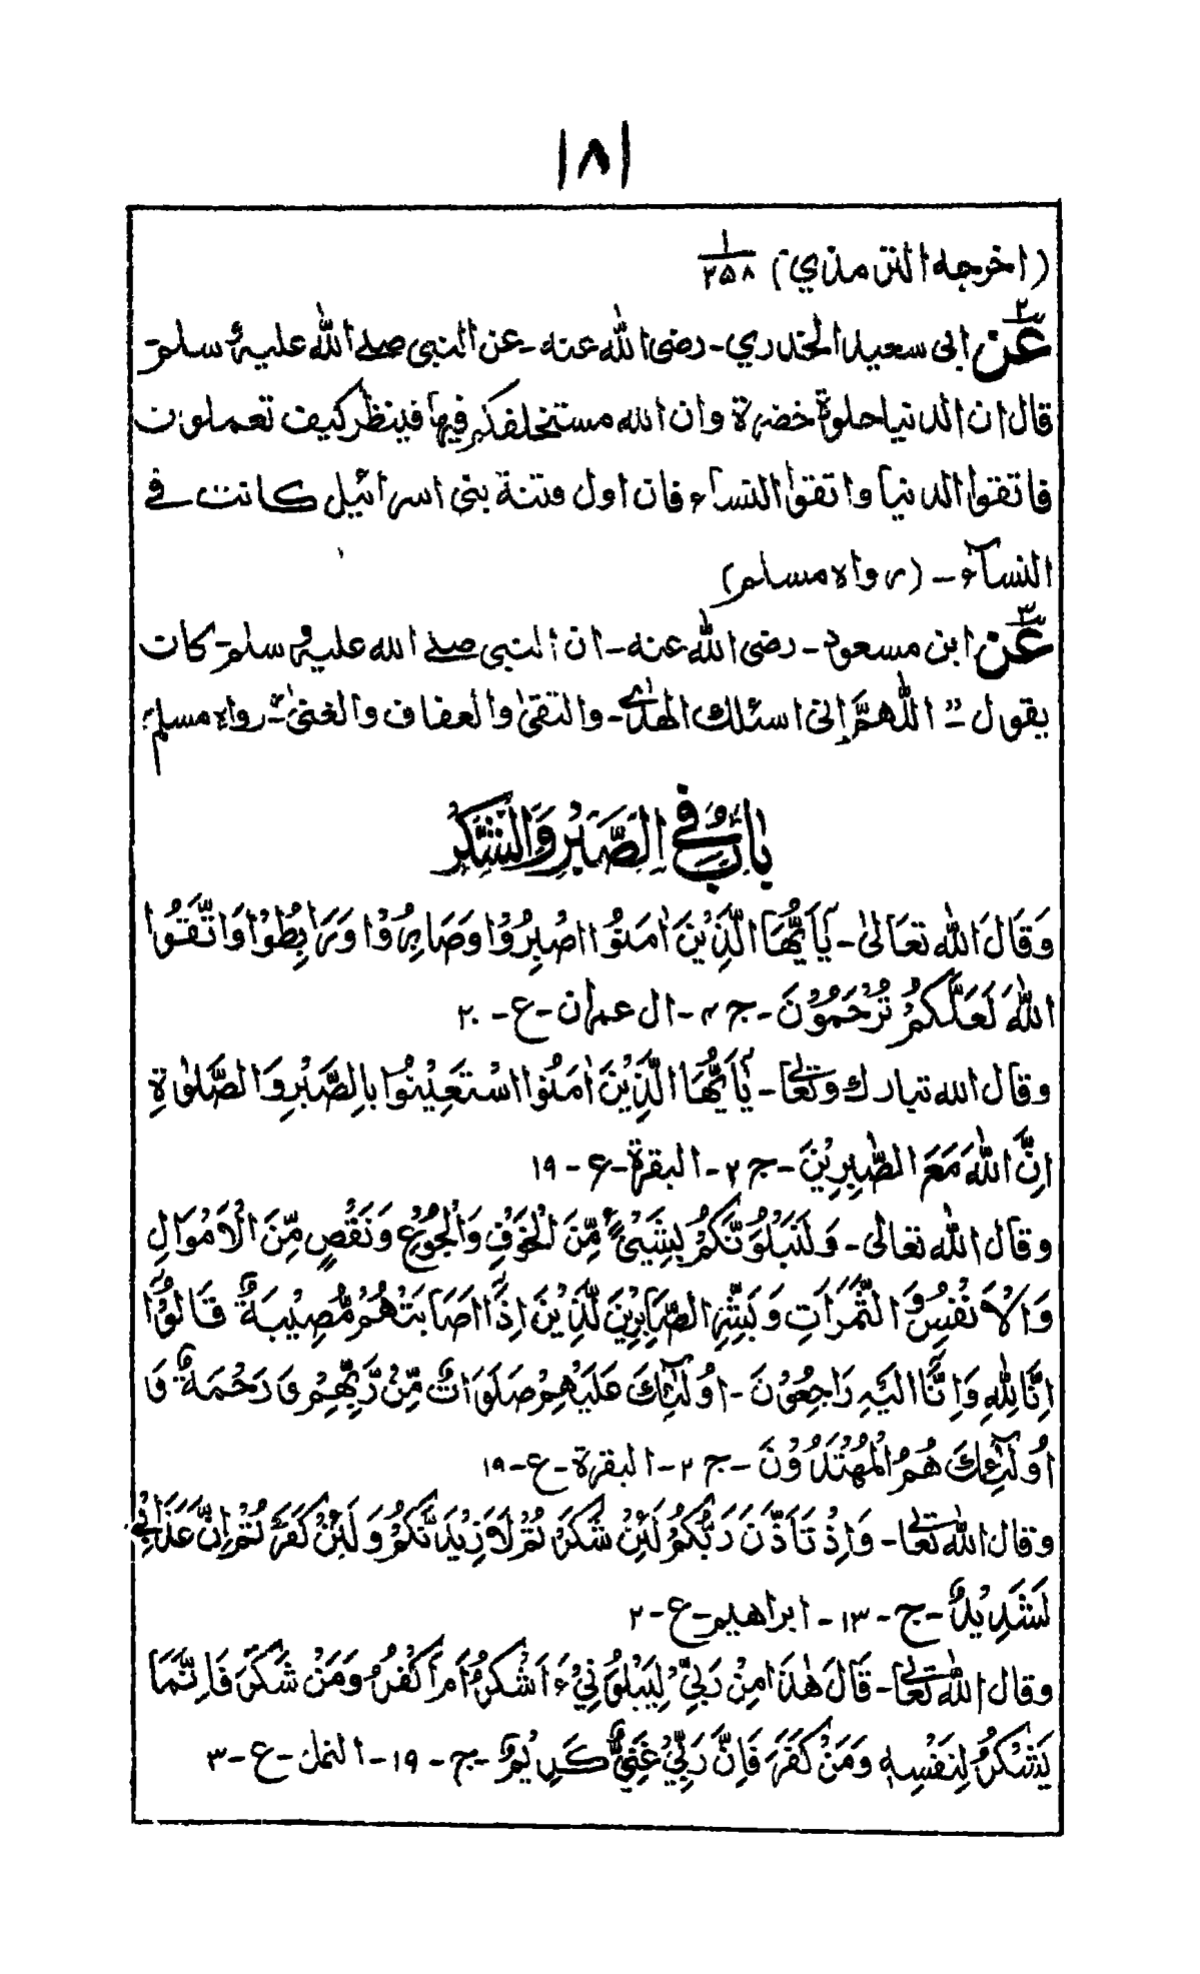 ١٨١
(اخرجه الترمذي) ١/٢٥٨
٢ عن ابى سعيد الخدري - رضى الله عنه - عن النبى صلے الله عليه وسلم
قال ان الدنيا حلوة خضرة وان الله مستخلفكم فيها فينظر كيف تعملون
فاتقوا الدنيا واتقوا النساء فان اول فتنة بنى اسرائيل كانت فى
النسآء - (رواه مسلم)
٣ عن ابن مسعود - رضى الله عنه - ان النبى صلے الله عليه وسلم - كان
يقول - اللهمَّ إنى اسئلك الهدٰى - والتقىٰ والعفاف والغنىٰ - رواه مسلم
بَابٌ فِى الصَّبْرِ وَالشُّكْرِ
وَقَالَ اللهُ تَعَالىٰ - يٰۤاَيُّهَا الَّذِيْنَ اٰمَنُوا اصْبِرُوْا وَصَابِرُوْا وَرَابِطُوْا وَاتَّقُوا
اللهَ لَعَلَّكُمْ تُرْحَمُوْنَ - ج ٤ - ال عمران - ع - ٢٠
وقال الله تبارك وتعالىٰ - يٰۤاَيُّهَا الَّذِيْنَ اٰمَنُوا اسْتَعِيْنُوْا بِالصَّبْرِ وَالصَّلوٰةِ
اِنَّ اللهَ مَعَ الصّٰبِرِيْنَ - ج ٢ - البقرة - ع - ١٩
وقال الله تعالٰى - وَلَنَبْلُوَنَّكُمْ بِشَيْئٍ مِّنَ الْخَوْفِ وَالْجُوْعِ وَنَقْصٍ مِّنَ الْاَمْوَالِ
وَالْاَنْفُسِ وَالثَّمَرَاتِ وَبَشِّرِ الصَّابِرِيْنَ الَّذِيْنَ اِذَا اَصَابَتْهُمْ مُّصِيْبَةٌ قَالُوْا
اِنَّا لِلّٰهِ وَاِنَّا اِلَيْهِ رَاجِعُوْنَ - اُولٰٓئِكَ عَلَيْهِمْ صَلَوَاتٌ مِّنْ رَّبِّهِمْ وَرَحْمَةٌ وَ
اُولٰٓئِكَ هُمُ الْمُهْتَدُوْنَ - ج ٢ - البقرة - ع - ١٩
وقال الله تعالىٰ - وَاِذْ تَاَذَّنَ رَبُّكُمْ لَئِنْ شَكَرْتُمْ لَاَزِيْدَنَّكُمْ وَلَئِنْ كَفَرْتُمْ اِنَّ عَذَابِىْ
لَشَدِيْدٌ - ج - ١٣ - ابراهيم - ع - ٢
وقال الله تعالىٰ - قَالَ هٰذَا مِنْ رَبِّىْ لِيَبْلُوَنِىْ ءَاَشْكُرُ اَمْ اَكْفُرُ وَمَنْ شَكَرَ فَاِنَّمَا
يَشْكُرُ لِنَفْسِهٖ وَمَنْ كَفَرَ فَاِنَّ رَبِّىْ غَنِىٌّ كَرِيْمٌ - ج - ١٩ - النمل - ع - ٣